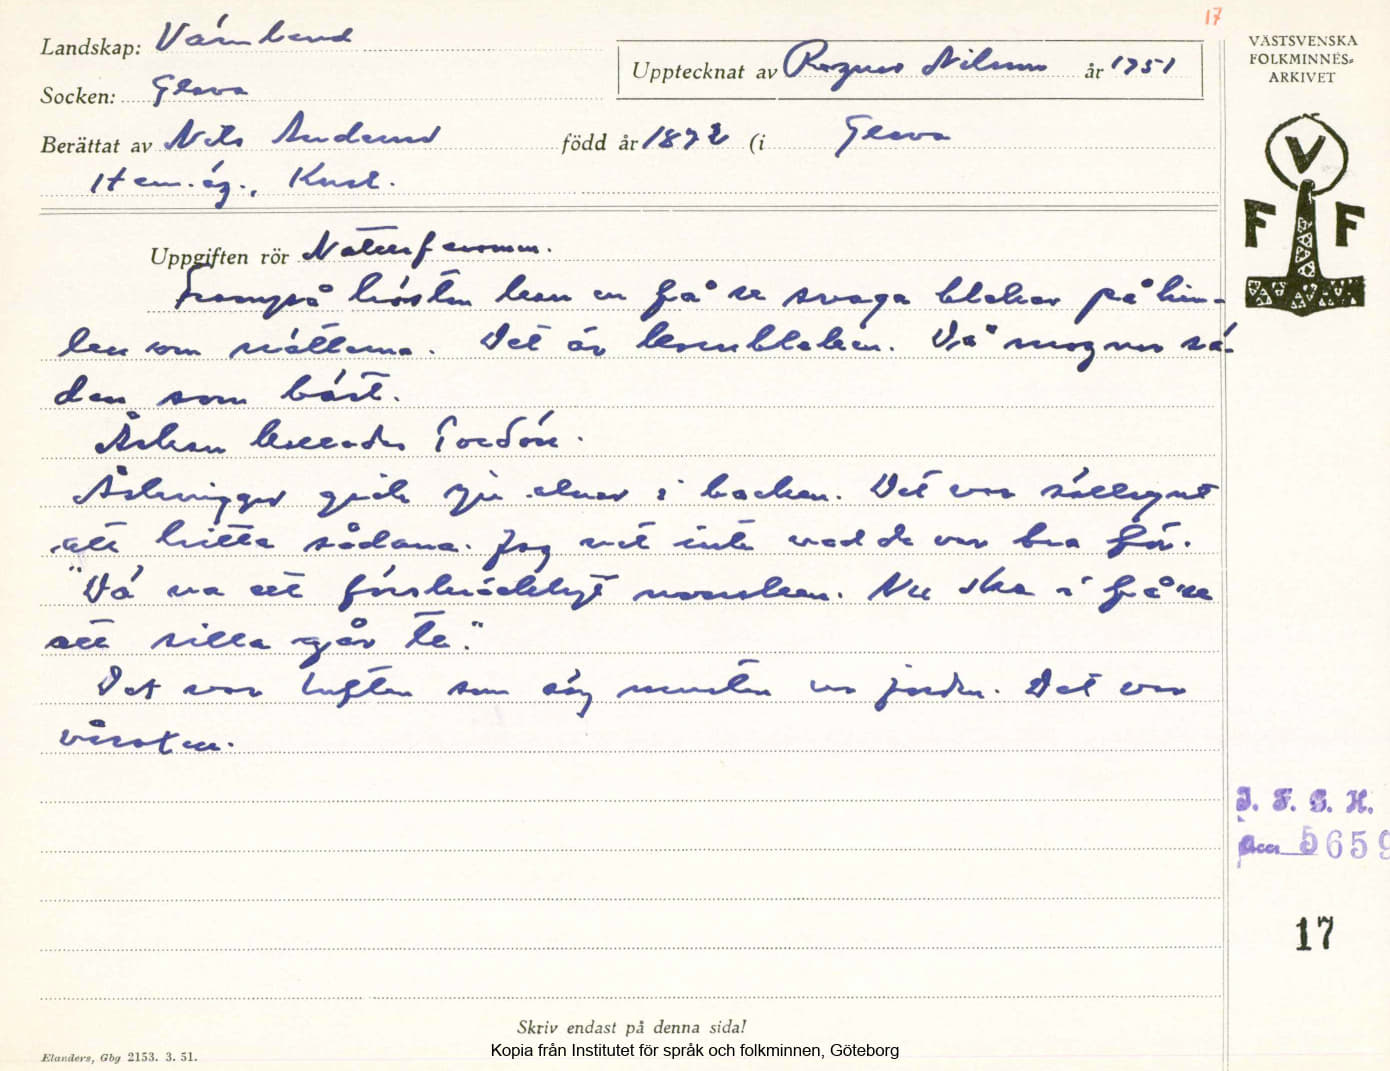 17
Landskap: Värmland
Upptecknat av Ragnar Nilsson år 1951
VÄSTSVENSKA
FOLKMINNES-
ARKIVET
Socken: Glava
Berättat av Nils född år 1872 (i Glava
Hem.äg.,
V
F F
Uppgiften rör Naturfenomen.
Frampå hösten kan en få se svaga blekar på him-
len om nätterna. Det är kornbleken. Dä mognar sä-
den som bäst.
Åskan kallades Tordön.
Åskviggar gick sju alnar i backen. Det var sällsynt
att hitta sådana. Jag vet inte vad de var bra för.
"Dä va ett förskräckligt norrsken. Nu ska i få se
att silla går te."
Det var luften som sög musten ur jorden. Det var
vårsten.
I. F. G. H.
Acc 5659
17
Skriv endast på denna sida!
Elanders, Gbg 2153. 3. 51.
Kopia från Institutet för språk och folkminnen, Göteborg